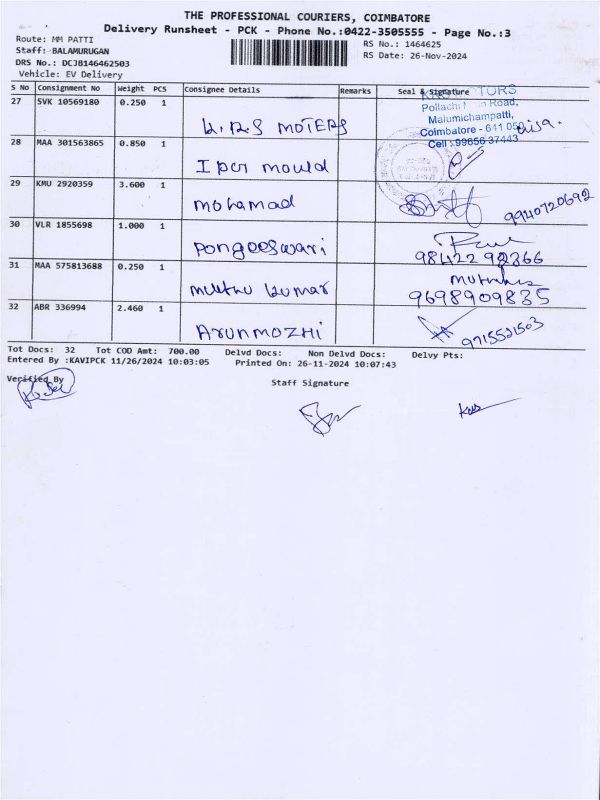 THE PROFESSIONAL COURIERS, COIMBATORE
Delivery Runsheet - PCK - Phone No.:0422-3505555 - Page No.:3
Route: MM PATTI
RS No.: 1464625
Staff: BALAMURUGAN
RS Date: 26-Nov-2024
DRS No.: DCJB146462503
Vehicle: EV Delivery
S No Consignment No Weight PCS Consignee Details Remarks Seal & Signature
27 SVK 10569180 0.250 1 K.R.S MOTERS
Pollachi Road,
Malumichampatti,
Coimbatore - 641 050
Cell : 99656 37443
28 MAA 301563865 0.850 1 mould
29 KMU 2920359 3.600 1 mohamad 9940720692
30 VLR 1855698 1.000 1 Pongeeswari 98422 92366
31 MAA 575813688 0.250 1 muthu kumar 9698909835
32 ABR 336994 2.460 1 ARUNMOZHI 9715521503
Tot Docs: 32 Tot COD Amt: 700.00 Delvd Docs: Non Delvd Docs: Delvy Pts:
Entered By :KAVIPCK 11/26/2024 10:03:05 Printed On: 26-11-2024 10:07:43
Verified By
Staff Signature